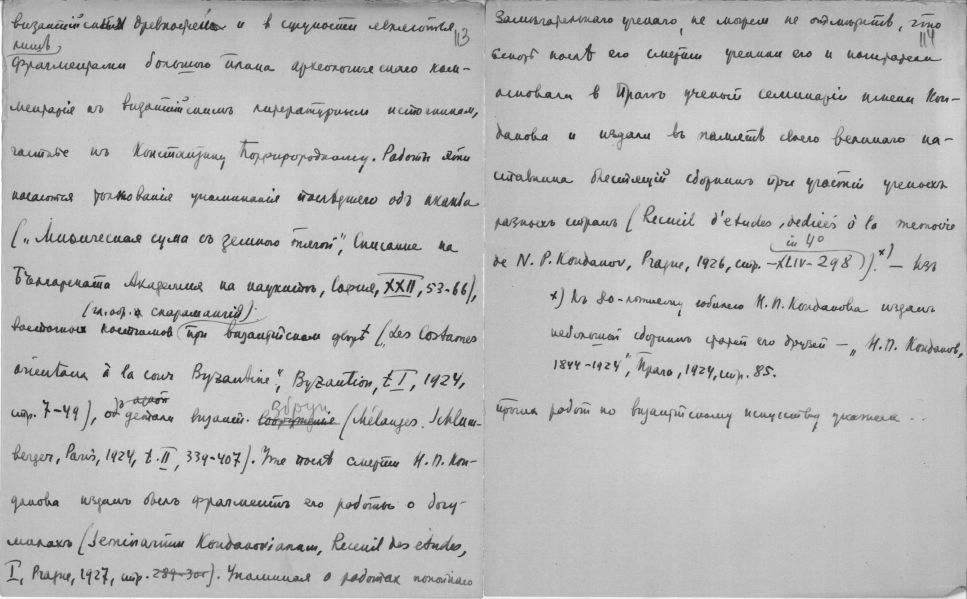 византійскихъ древностей и в сущности являются
113
лишь
фрагментами большого плана археологическаго ком-
ментарія къ византійскимъ литературнымъ источникам,
частью къ Константину Порфирородному. Работы эти
касаются толкованія упоминанія послѣдняго объ
(„Мифическая сума съ земного тягой", Списание на
Българската Академия на наукитѣ, София, XXII, 53-66),
(гл. обр. о скарамангіѣ).
восточных костюмов при византійском дворѣ („Les Costumes
orientaux à la cour Byzantine", Byzantion, t I, 1924,
стр. 7-49), объ одной детали визант. сбруи (Mélanges Schlum-
berger, Paris, 1924, t. II, 339-407). Уже послѣ смерти Н. П. Кон-
дакова изданъ былъ фрагментъ его работы о богу-
милахъ (Seminarium Kondakovianum, Recueil des études,
I, Prague, 1927, стр. 289-301). Упоминая о работах покойнаго
114
Замѣчательнаго ученаго, не можем не отмѣтить, что
вскорѣ послѣ его смерти ученики его и почитатели
основали в Прагѣ ученый семинарій имени Кон-
дакова и издали въ память своего великаго на-
ставника блестящій сборникъ при участіи ученыхъ
разныхъ стран (Recueil d'études, dediées à la memoire
in 4°
de N. P. Kondakov, Prague, 1926, стр. XLIV-298).ˣ⁾ — Изъ
x) Къ 80-лѣтнему юбилею Н. П. Кондакова изданъ
небольшой сборникъ статей его друзей — „Н. П. Кондаков,
1844-1924", Прага, 1924, стр. 85.
прочих работ по византійскому искусству, укажем ..